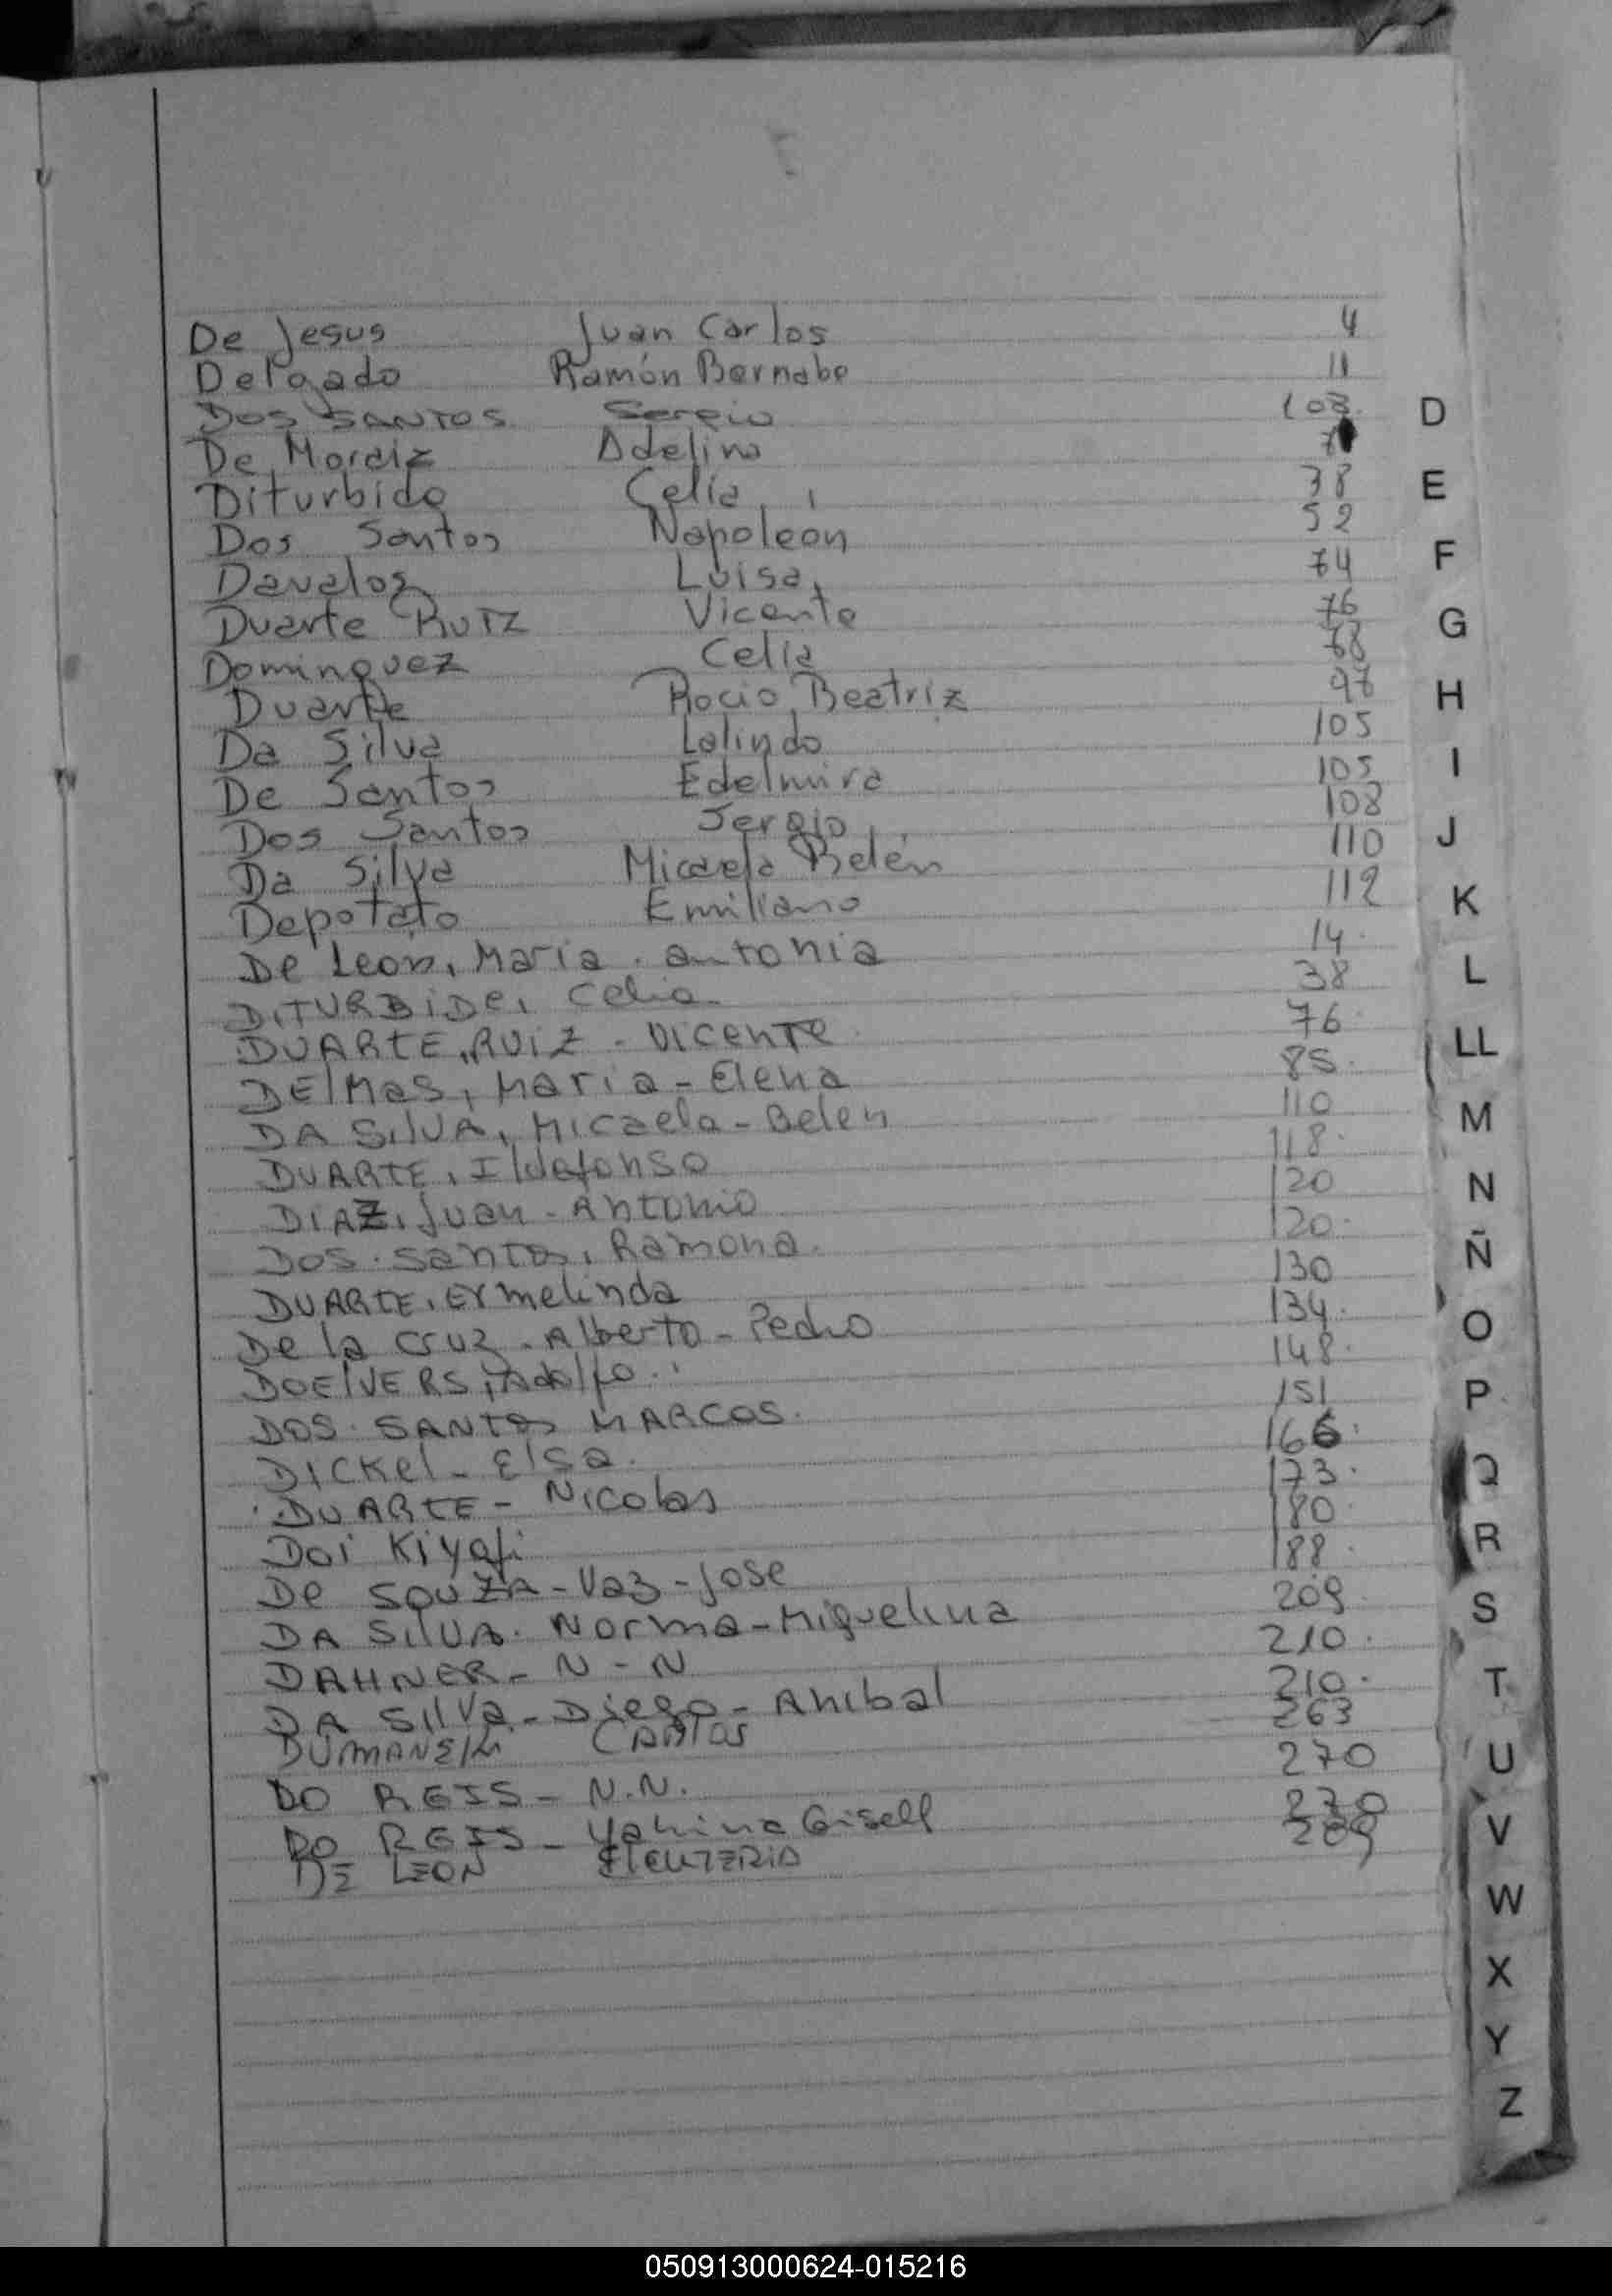 De Jesus Juan Carlos 4
Delgado Ramón Bernabe 11
DOS SANTOS Sergio 108.
De Moraiz Adelino 7
Diturbide Celia 38
Dos Santos Napoleón 52
Davalos Luisa 74
Duarte Ruiz Vicente 76
Dominguez Celia 78
Duarte Rocio Beatriz 97
Da Silva Lalindo 105
De Santos Edelmira 105
Dos Santos Sergio 108
Da Silva Micaela Belén 110
Depotato Emiliano 112
De Leon, Maria. antonia 14.
DITURBIDE, Celia. 38
DUARTE, RUIZ - VICENTE. 76.
DElMas, Maria - Elena 85.
DA SilVA, Micaela - Belen 110
DUARTE, Ildefonso 118.
DIAZ, Juan - Antonio 120
DOS. Santos, Ramona. 120.
DUARTE, Ermelinda 130
De la Cruz - Alberto - Pedro 134.
DOElVERS, Adolfo. 148.
DOS. SANTOS MARCOS. 151
DICKel - Elsa. 166.
DUARTE - Nicolas 173.
Doi Kiyofi 180.
De SOUZA - Vaz - Jose 188.
DA SilVA. Norma - Miguelina 209.
DAHNER - N - N 210.
DA SilVa - Diego - Anibal 210.
CARlos 263
DO REIS - N.N. 270
DO REIS - Yanina Gisell 270
DE LEON ElEUTERIO 289
D
E
F
G
H
I
J
K
L
LL
M
N
Ñ
O
P
Q
R
S
T
U
V
W
X
Y
Z
050913000624-015216